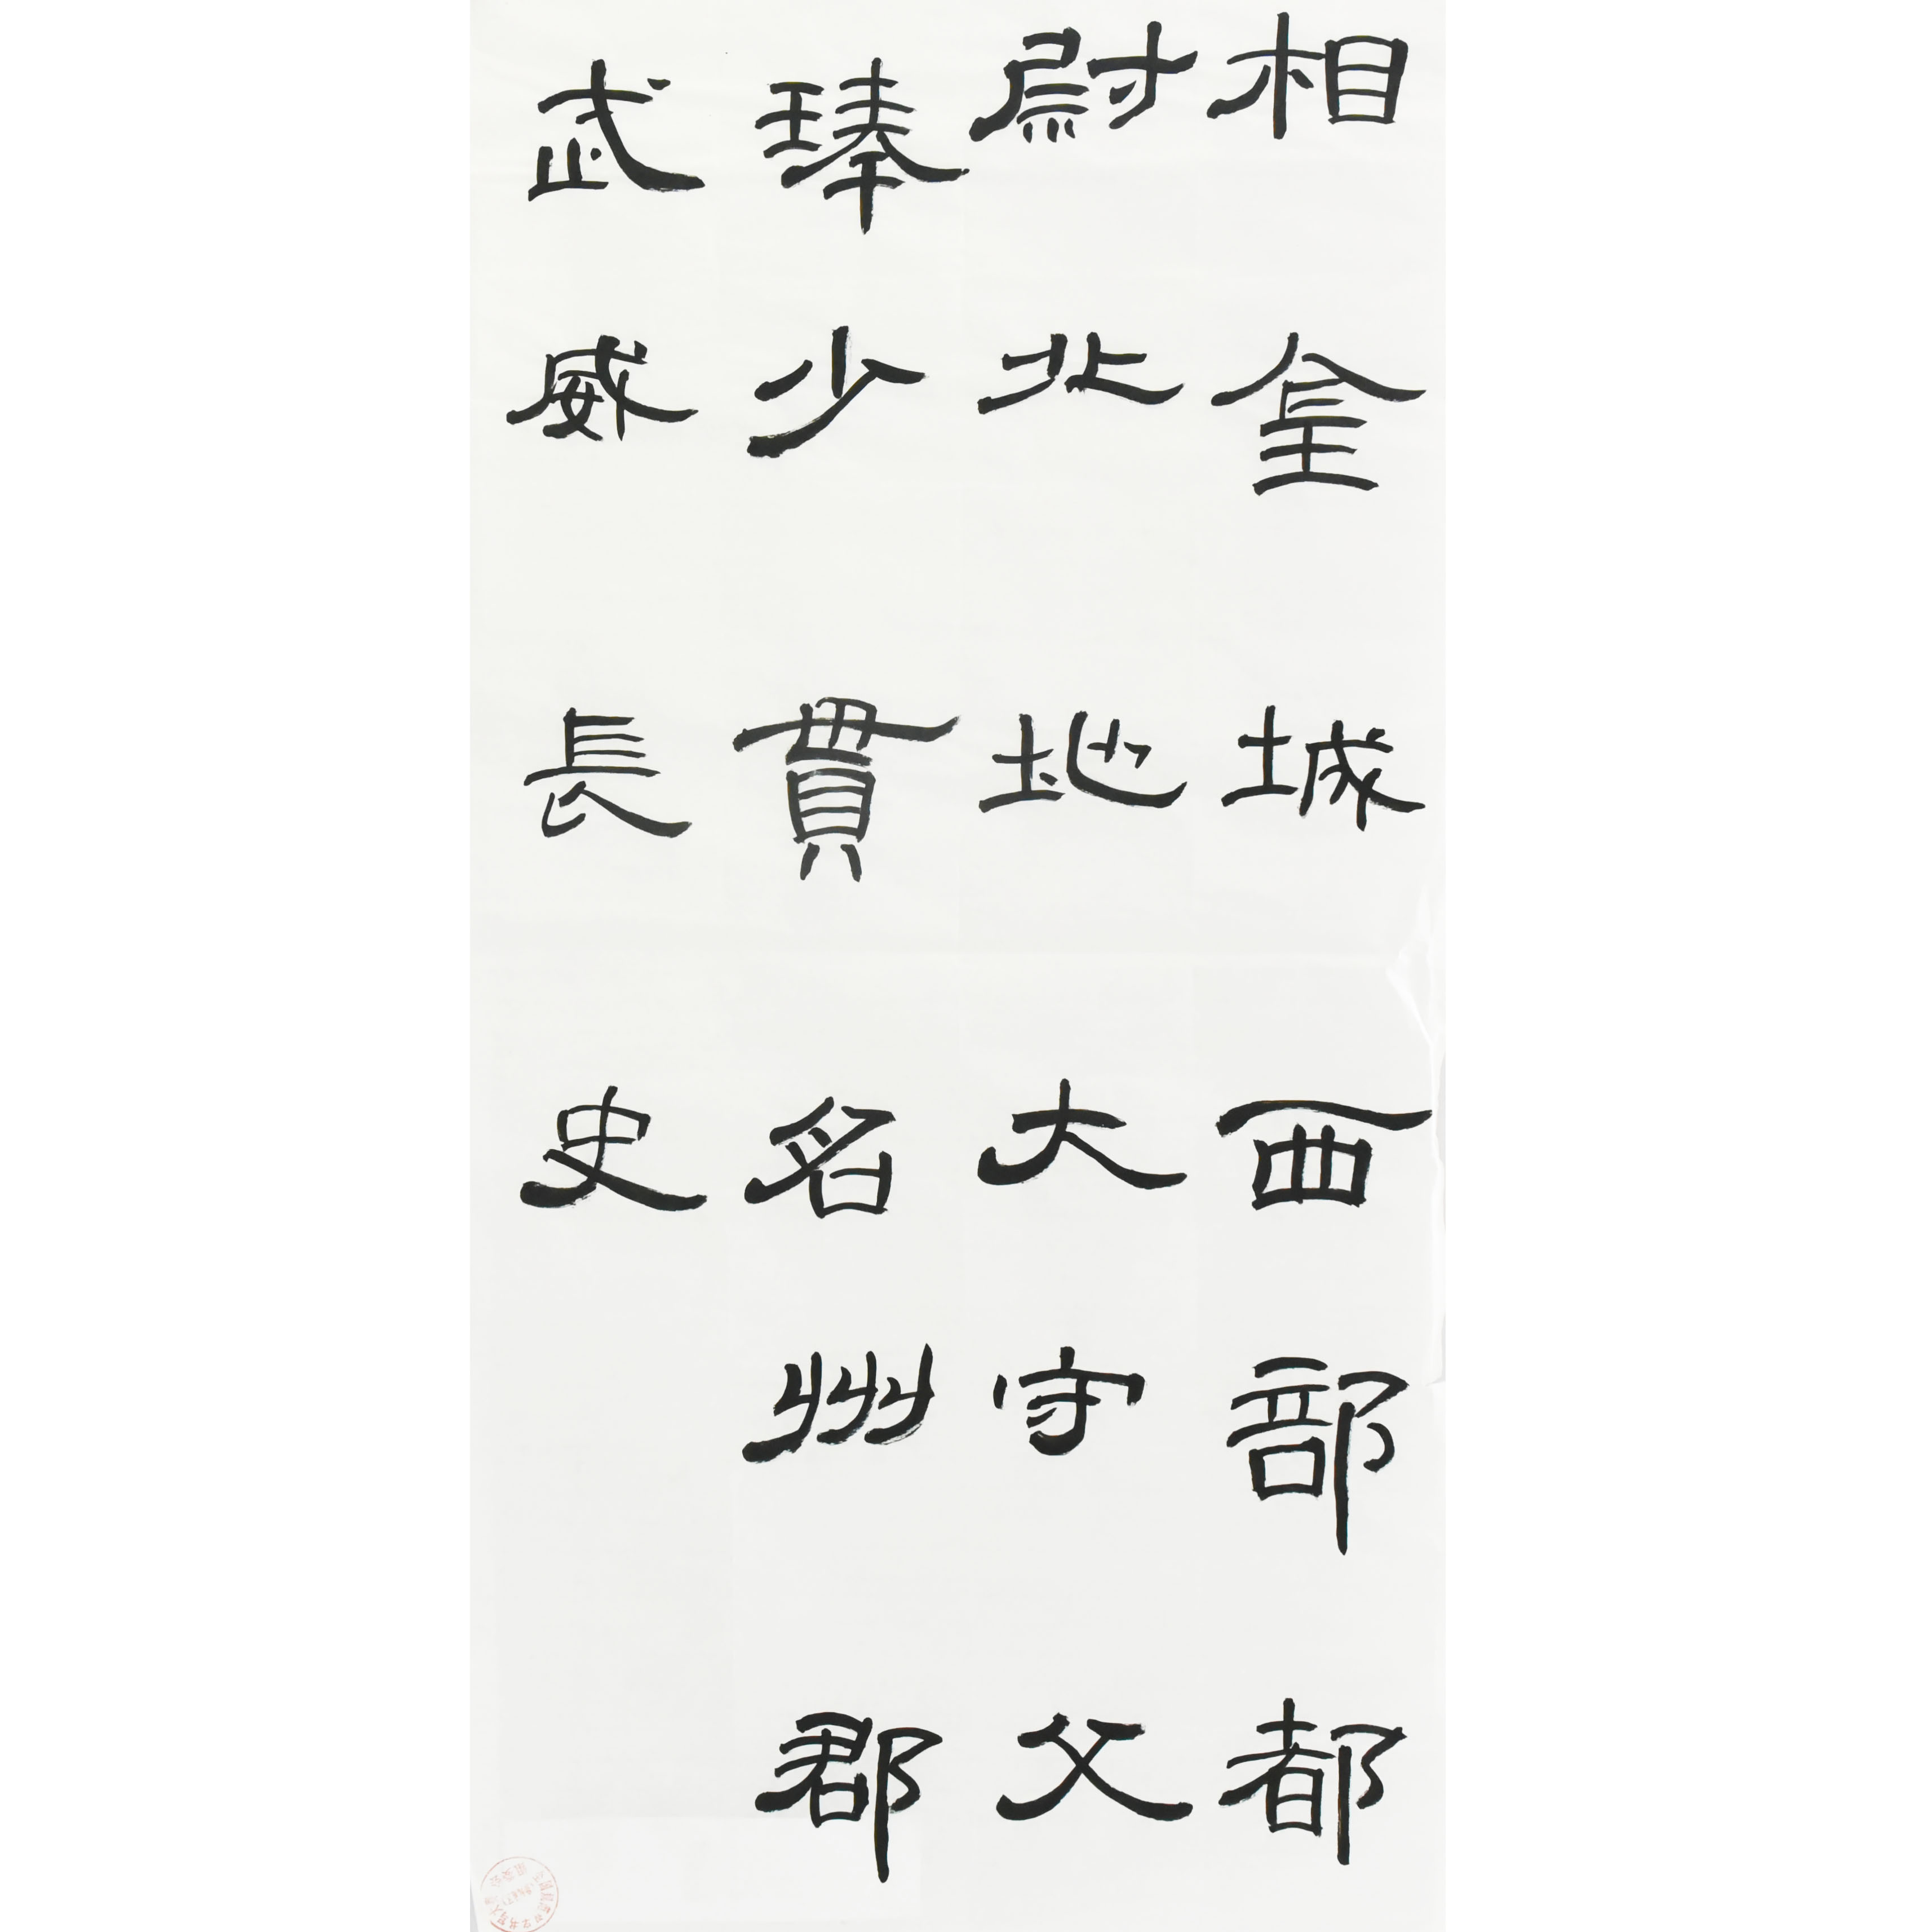 相金城西部都
尉北地大守父
琫少貫名州郡
武威長史